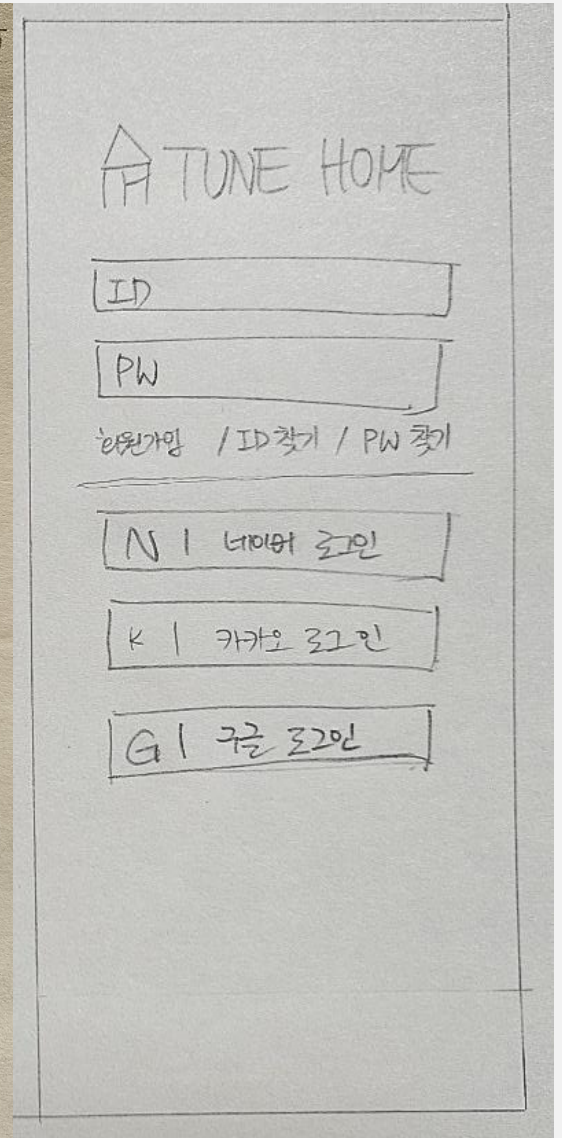 TUNE HOME
ID
PW
회원가입 / ID 찾기 / PW 찾기
N | 네이버 로그인
K | 카카오 로그인
G | 구글 로그인